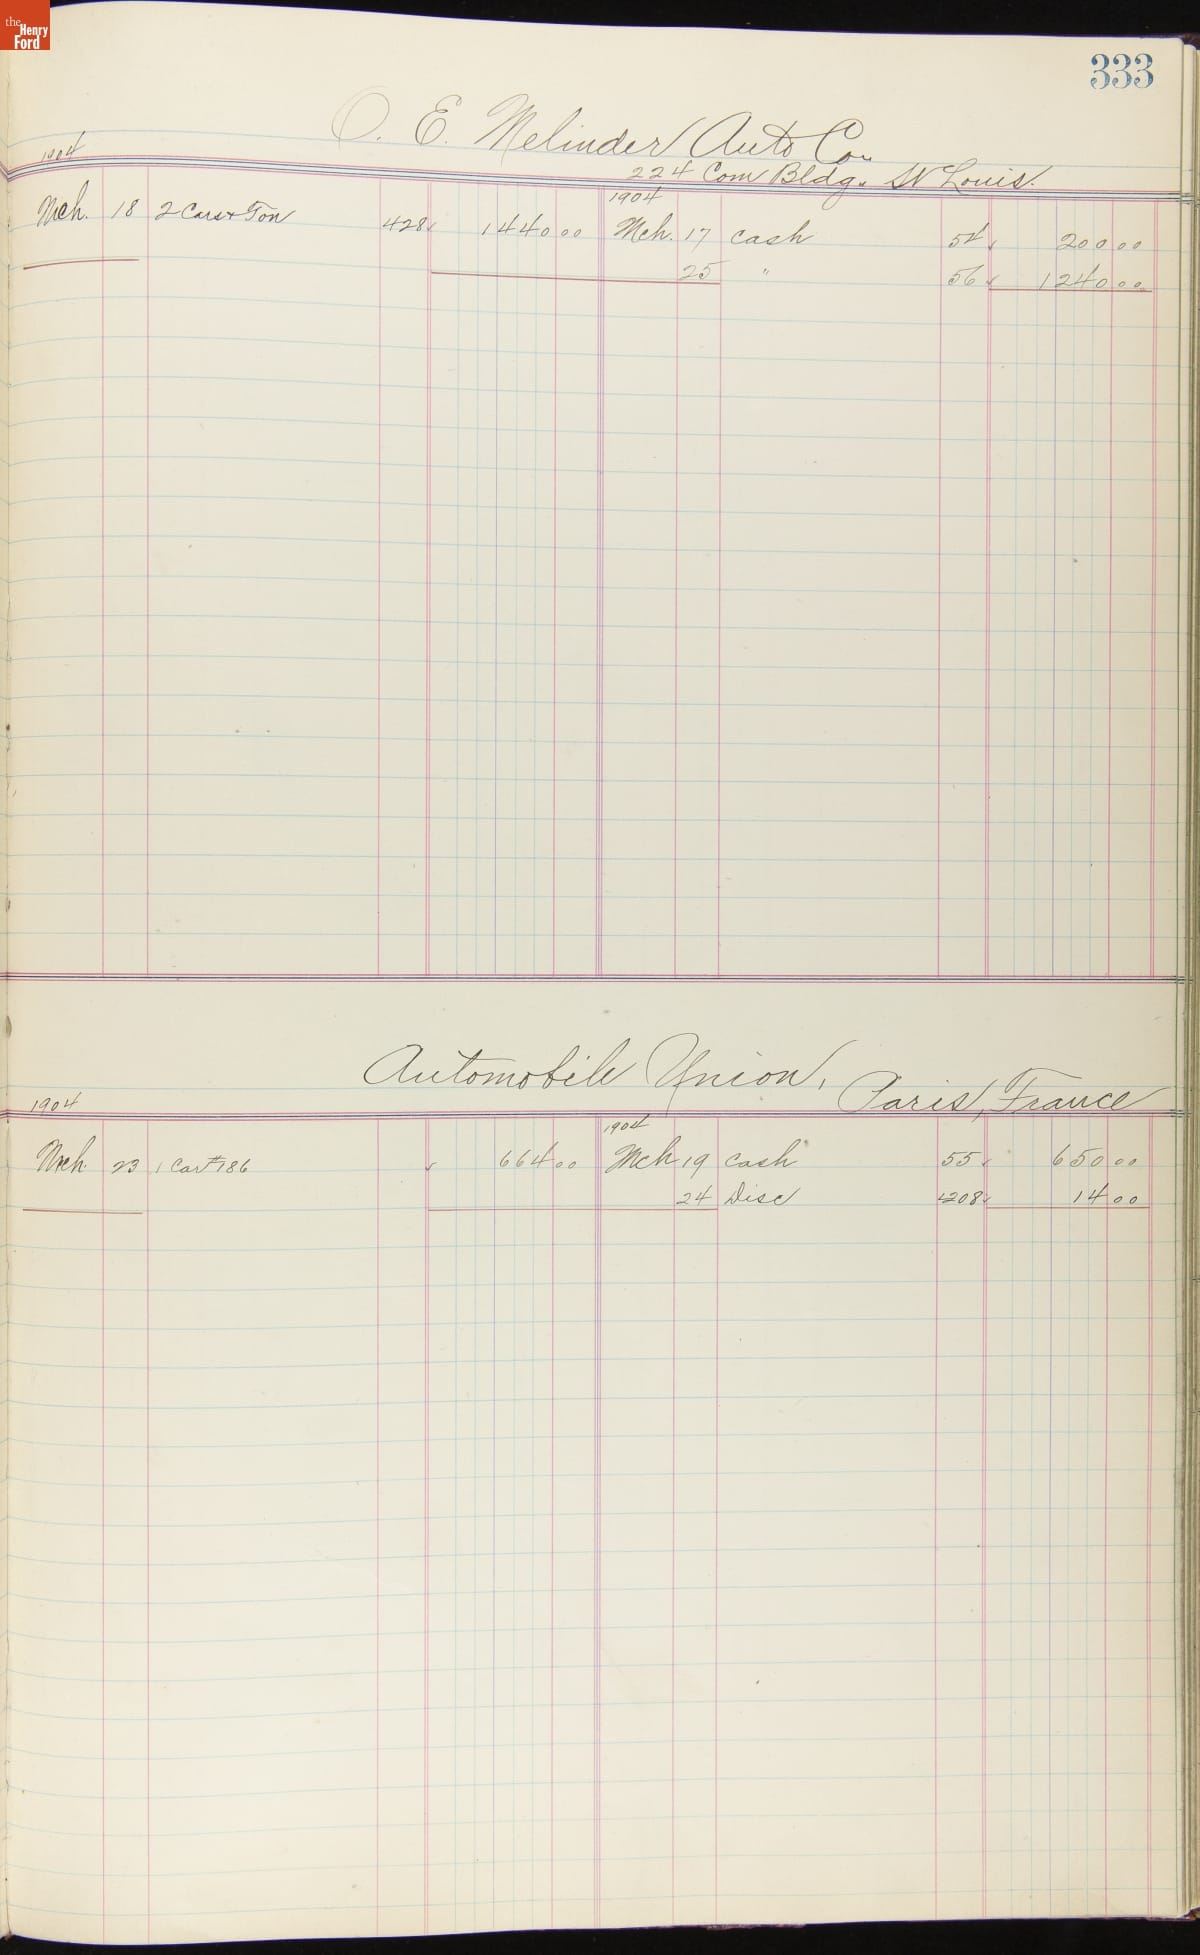 the Henry Ford
333
O. E. Melinder Auto Co.
224 Com Bldg. St Louis.
1904
1904
Mch. 18 2 Cars + Ton 428 1440 00 Mch. 17 Cash 54 200 00
25 " 56 1240 00
Automobile Union,
Paris, France
1904
1904
Mch. 23 1 Car #186 664 00 Mch 19 Cash 55 650 00
24 Disc 208 14 00